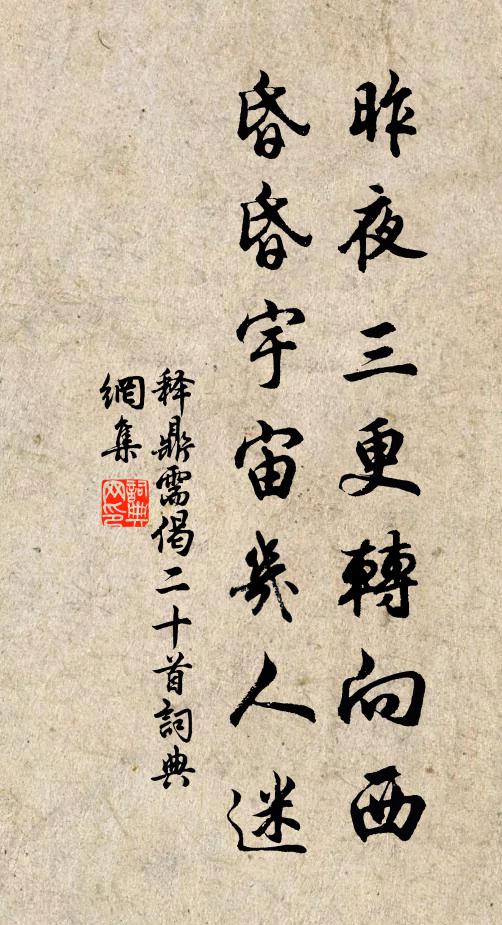 昨夜三更轉向西
昏昏宇宙幾人迷
释鼎需偈二十首詞典
網集
詞典
网印